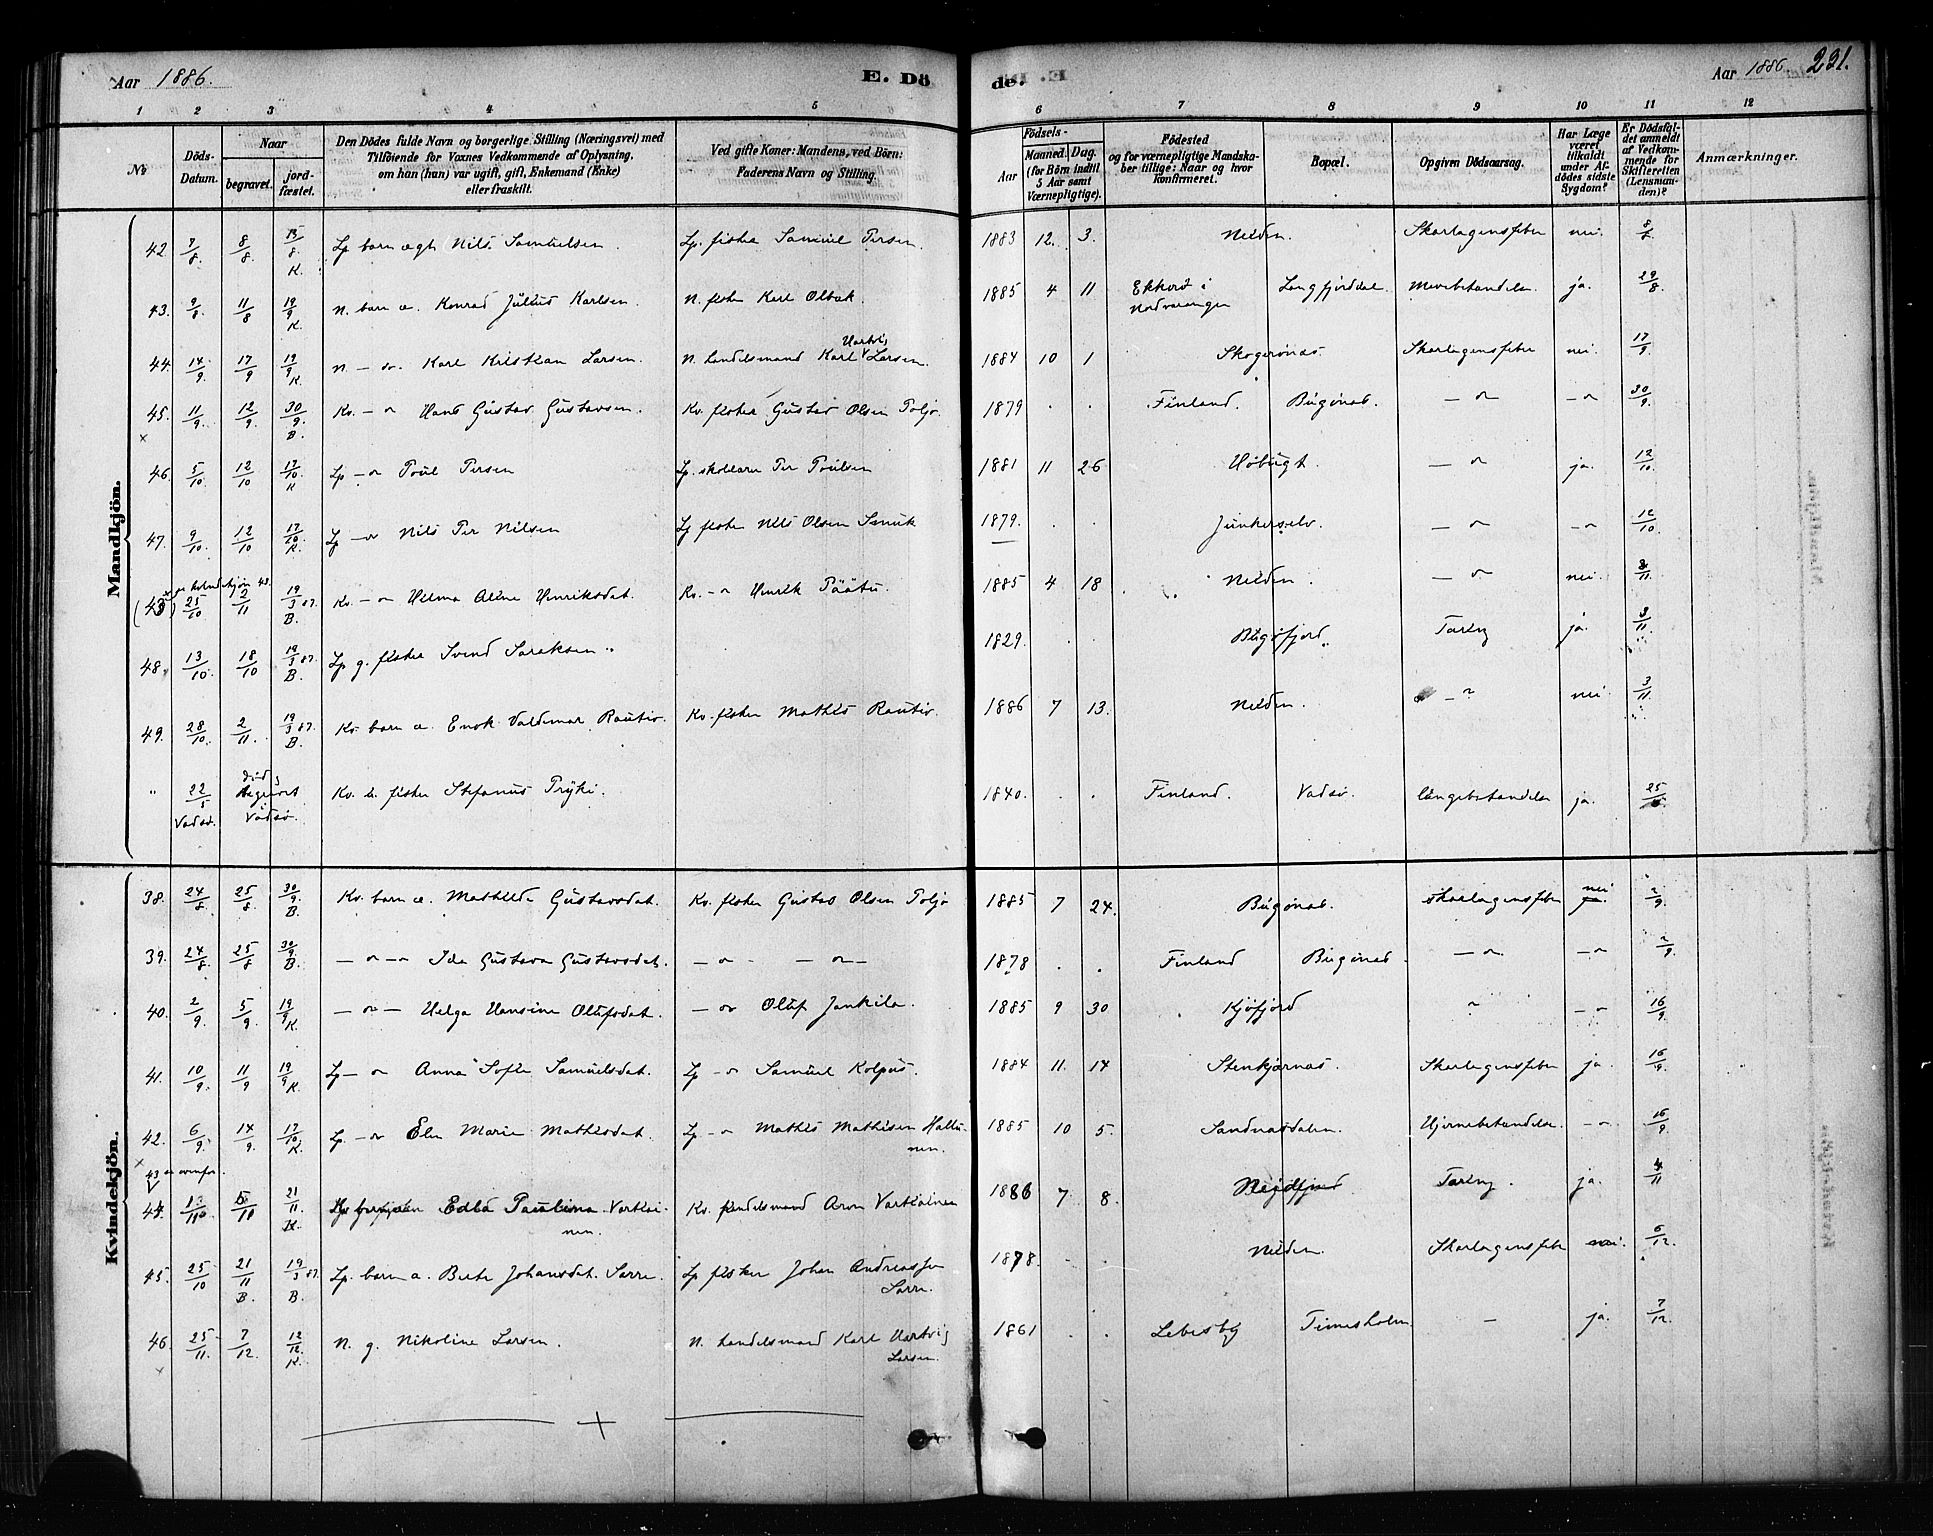 Aar 1886. E. Dö de. Aar 1886. 231.
1 2 3 4 5 6 7 8 9 10 11 12
No
Döds-Datum.
Naar
begravet.
jordfæstet.
Den Dödes fulde Navn og borgerlige Stilling (Næringsvei) med
Tilföiende for Voxnes Vedkommende af Oplysning,
om han (hun) var ugift, gift, Enkemand (Enke)
eller fraskilt.
Ved gifte Koner: Mandens, ved Börn:
Faderens Navn og Stilling.
Födsels-
Aar
Maaned. Dag.
(for Börn indtil
5 Aar samt
Værnepligtige).
Födested
og for værnepligtige Mandskaber tillige: Naar og hvor
konfirmeret.
Bopæl.
Opgiven Dödsaarsag.
Har Læge
været
tilkaldt
under Afdödes sidste
Sygdom?
Er Dödsfaldet anmeldt
af Vedkommende for
Skifteretten
(Lensmanden)?
Anmærkninger.
Mandkjön.
42. 7/8 8/8 15/8 K. Lp barn ægt Nils Samuelsen. Lp. fisker Samuel Persen. 1883 12. 3. Neiden. Skarlagensfeber nei. 8/8
43. 9/8 11/8 19/9 K. N. barn æ. Konrad Julius Karlsen. N. fisker Karl Olbak. 1885 4 11 Ekkerö i Nordvaranger Langfjorddal. Mavebetændelse ja. 29/8.
44. 14/9. 17/9 19/9 K. N. — " — Karl Kristian Larsen. N. handelsmand Karl Hartvig Larsen. 1884 10 1 Skogerönæs. Skarlagensfeber nei. 17/9.
45. 11/9. 12/9. 30/9. B. Kv. — " Hans Gustav Gustavsen. Kv. fisker Gustav Olsen Poljo. 1879 . . Finland. Bugönæs. — " — " 30/9.
46. 5/10. 12/10 17/10. K Lp — " Poul Persen Lp. skolelærer Per Poulsen 1881 11 26 Höbugt. — " ja. 12/10.
47. 9/10. 12/10 17/10. K. Lp — " Nils Per Nilsen Lp fisker Nils Olsen Smuk 1879. . . Junkerselv. — " — " 12/10.
(43) se kvindekjön 43. 25/10 2/11 19/3 87. B. Kv. — " Hilma Aline Henriksdat. Kv. — " Henrik Päätu. 1885 4 18 Neiden. — " nei. 3/11
48. 13/10. 18/10 19/3 87. B. Lp g. fisker Svend Saraksen. 1829. . . Bugöfjord. Taring ja. 3/11
49. 28/10. 2/11. 19/3 87. B. Kv. barn æ. Enok Valdemar Rautio. Kv. fisker Mathis Rautio. 1886 7 13. Neiden. — " nei. 3/11.
" 22/5 Vadsö. död & begravet i Vadsö. Kv. fisker Stefanus Pryki. 1840. . . Finland. Vadsö. lungebetændelse ja. 25/
Kvindekjön.
38. 24/8 25/8. 30/9. B. Kv. barn æ. Mathilde Gustavsdat. Kv. fisker Gustav Olsen Poljo 1885 7 24. Bugönæs. skarlagensfeber nei 2/9.
39. 24/8. 25/8. 30/9. B. — " — Ida Gustava Gustavsdat. — " — — " — 1878 . . Finland Bugönæs — " — " 2/9.
40. 2/9. 5/9. 19/9 K. — " — Helga Hansine Olufsdat. — " Oluf Jankila. 1885 9 30 Kjöfjord " — " 16/9.
41. 10/9. 11/9 19/9 K. Lp — " Anna Sofie Samuelsdat. Lp — " Samuel Kolpus. 1884 11. 14 Stenkjærnæs. Skarlagensfeber ja. 16/9.
42. 6/9. 14/9. 17/10. K. Lp. — " Elen Marie Mathisdat. Lp — " Mathis Mathisen Haltunen. 1885 10 5. Sandnæsdalen. Hjernebetændelse. — " 16/9.
43 se ovenfor.
44. 13/10 /11 21/11. Edla Paulina Vartiainen. Kv. handelsmand Aron Vartiainen 1886 7 8. Neidfjord Taring. ja. 4/11
45. 25/10 21/11 B. 19/3 87. B. Lp. barn æ. Berte Johansdat. Sarre. Lp fisker Johan Andreassen Sarre. 1878. . . Neiden. Skarlagensfeber nei. 6/12.
46. 25/11. 7/12. 12/12. K. N. g. Nikoline Larsen. N. handelsmand Karl Hartvig Larsen. 1861 . . Lebesby Timesholm. — ja. 7/12.